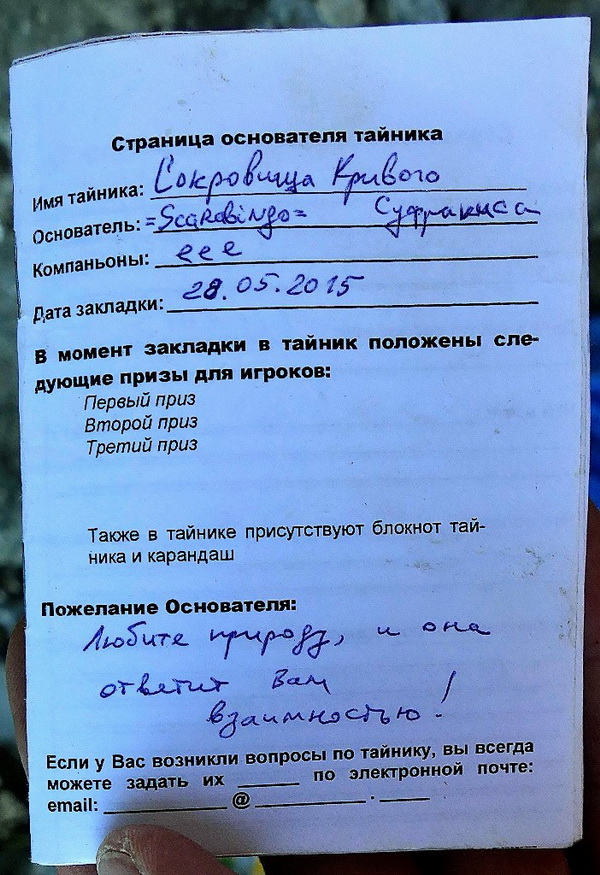 Страница основателя тайника
Имя тайника: Сокровища Кривого
Основатель: =Scarabingo= Суфракиса
Компаньоны: eee
Дата закладки: 28.05.2015
В момент закладки в тайник положены сле-
дующие призы для игроков:
Первый приз
Второй приз
Третий приз
Также в тайнике присутствуют блокнот тай-
ника и карандаш
Пожелание Основателя:
Любите природу, и она
ответит Вам
взаимностью!
Если у Вас возникли вопросы по тайнику, вы всегда
можете задать их ______ по электронной почте:
email: ____________ @ ___________ . _____